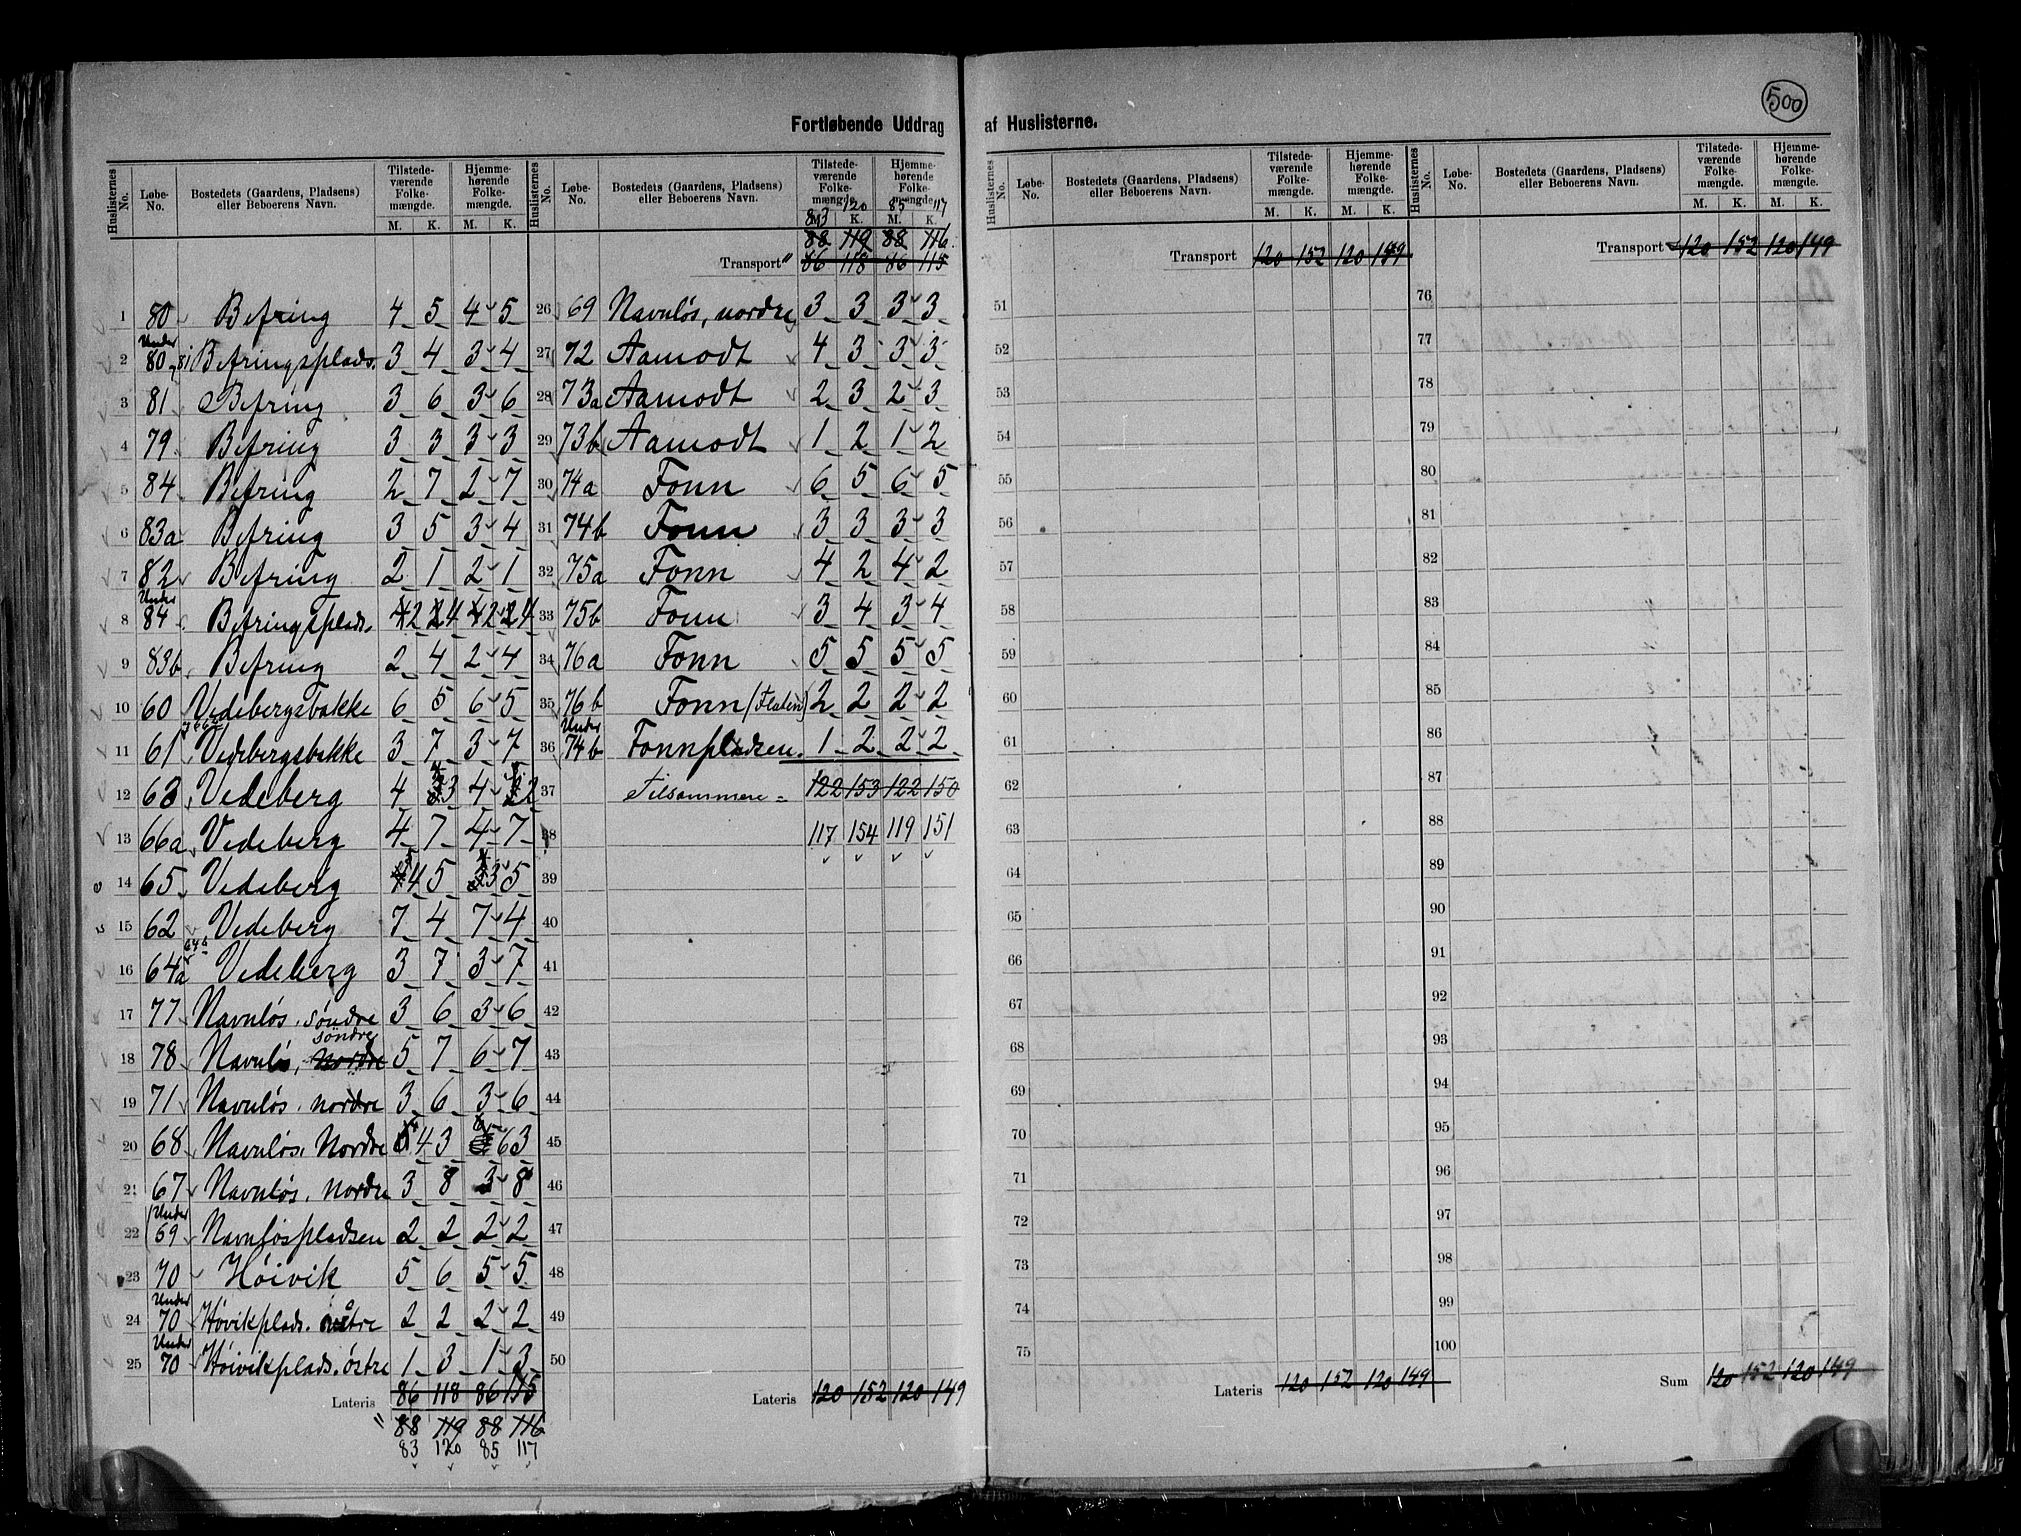 500
Fortløbende Uddrag af Huslisterne.
Huslisternes No. Løbe-No. Bostedets (Gaardens, Pladsens) eller Beboerens Navn. Tilstedeværende Folkemængde. M. K. Hjemmehørende Folkemængde. M. K.
1 80 Befring 4 5 4 5
2 Under 80, 81 Befringsplads. 3 4 3 4
3 81 Befring 3 6 3 6
4 79 Befring 3 3 3 3
5 84 Befring 2 7 2 7
6 83a Befring 3 5 3 4
7 82 Befring 2 1 2 1
8 Under 84 Befringsplads. 2 4 2 4
9 83b Befring 2 4 2 4
10 60 Vedebergsbakke 6 5 6 5
11 61 Vedebergsbakke 3 7 3 7
12 63 Vedeberg 4 3 4 2
13 66a Vedeberg 4 7 4 7
14 65 Vedeberg 4 5 3 5
15 62 Vedeberg 7 4 7 4
16 64a 64b Vedeberg 3 7 3 7
17 77 Navnløs, søndre 3 6 3 6
18 78 Navnløs, Nordre söndre 5 7 6 7
19 71 Navnløs, nordre 3 6 3 6
20 68 Navnløs, Nordre 4 3 6 3
21 67 Navnløs, nordre 3 8 3 8
22 Under 69 Navnløspladsen 2 2 2 2
23 70 Høivik 5 6 5 5
24 Under 70 Høvikplads. 2 2 2 2
25 Under 70 Høivikplads. østre 1 3 1 3
Lateris 86 118 86 115
" 88 119 88 116
83 120 85 117
Huslisternes No. Løbe-No. Bostedets (Gaardens, Pladsens) eller Beboerens Navn. Tilstedeværende Folkemængde. M. K. Hjemmehørende Folkemængde. M. K.
83 120 85 117
88 119 88 116
Transport " 86 118 86 115
26 69 Navnløs, nordre 3 3 3 3
27 72 Aamodt 4 3 3 3
28 73a Aamodt 2 3 2 3
29 73b Aamodt 1 2 1 2
30 74a Fonn 6 5 6 5
31 74b Fonn 3 3 3 3
32 75a Fonn 4 2 4 2
33 75b Fonn 3 4 3 4
34 76a Fonn 5 5 5 5
35 76b Fonn (Flaten) 2 2 2 2
36 Under 74b Fonnpladsen. 1 2 2 2
37 Tilsammen = 122 153 122 150
38 117 154 119 151
39
40
41
42
43
44
45
46
47
48
49
50
Lateris 120 152 120 149
Huslisternes No. Løbe-No. Bostedets (Gaardens, Pladsens) eller Beboerens Navn. Tilstedeværende Folkemængde. M. K. Hjemmehørende Folkemængde. M. K.
Transport 120 152 120 149
51
52
53
54
55
56
57
58
59
60
61
62
63
64
65
66
67
68
69
70
71
72
73
74
75
Lateris 120 152 120 149
Huslisternes No. Løbe-No. Bostedets (Gaardens, Pladsens) eller Beboerens Navn. Tilstedeværende Folkemængde. M. K. Hjemmehørende Folkemængde. M. K.
Transport 120 152 120 149
76
77
78
79
80
81
82
83
84
85
86
87
88
89
90
91
92
93
94
95
96
97
98
99
100
Sum 120 152 120 149